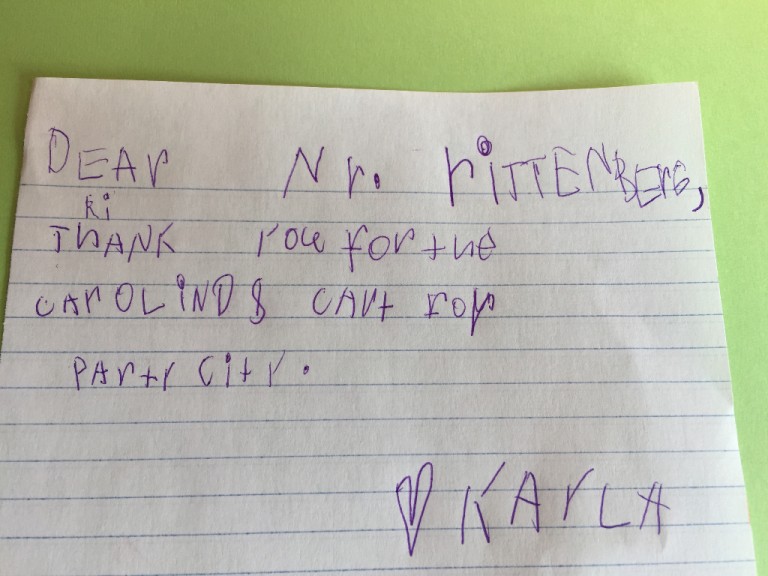 DEAr Nr. riTTENBErG,
ki
THANK you for the
CArOLiND8 CArt for
PArty City.
♡ KArLA